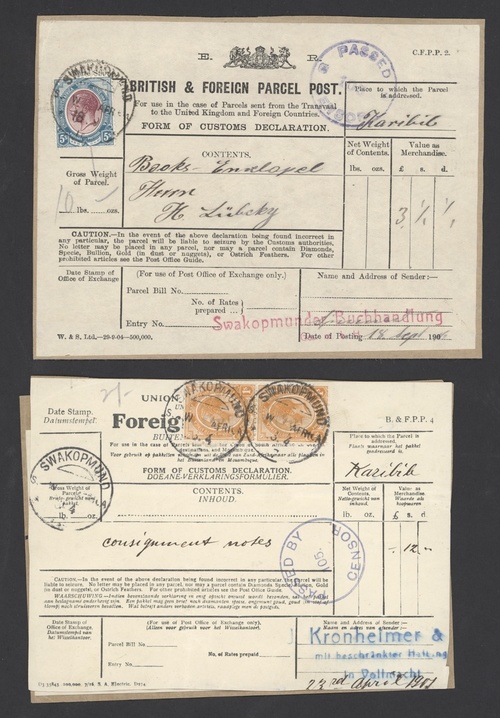 E. R.
C.F.P.P. 2.
PASSED
SWAKOPMUND
BRITISH & FOREIGN PARCEL POST.
For use in the case of Parcels sent from the Transvaal
to the United Kingdom and Foreign Countries.
FORM OF CUSTOMS DECLARATION.
Place to which the Parcel
is addressed.
Karibib
CONTENTS.
Net Weight
of Contents.
Value as
Merchandise.
lbs. ozs. £ s. d.
Gross Weight
of Parcel.
lbs. ozs.
Books
Herrn
H. Lübcky
CAUTION.—In the event of the above declaration being found incorrect in
any particular, the parcel will be liable to seizure by the Customs authorities.
No letter may be placed in any parcel, nor may a parcel contain Diamonds,
Specie, Bullion, Gold (in dust or nuggets), or Ostrich Feathers. For other
prohibited articles see the Post Office Guide.
Date Stamp of
Office of Exchange
(For use of Post Office of Exchange only.)
Parcel Bill No.
No. of Rates
prepared ...
Entry No.
Name and Address of Sender:—
Swakopmunder Buchhandlung
Date of Posting 18. Sept. 190
W. & S. Ltd.—29-9-04—500,000.
UNION
SWAKOPMUND
SWAKOPMUND
B. & F.P.P. 4
Date Stamp.
Datumstempel.
Foreig
BUITE
FORM OF CUSTOMS DECLARATION.
DOEANE-VERKLARINGSFORMULIER.
Place to which the Parcel is
addressed.
Karibib
SWAKOPMUND
Gross Weight of
lb. oz.
CONTENTS.
INHOUD.
Net Weight of
Contents.
Value as
Merchandise.
lb. oz. £ s. d.
consignment notes
12
PASSED BY CENSOR
CAUTION.—In the event of the above declaration being found incorrect in any particular, the Parcel will be
liable to seizure. No letter may be placed in any parcel, nor may a parcel contain Diamonds, Specie, Bullion, Gold (in
dust or nuggets), or Ostrich Feathers. For other prohibited articles see the Post Office Guide.
Date Stamp of
Office of Exchange.
Datumstempel van
het Wisselkantoor.
(For use of Post Office of Exchange only).
(Alleen voor gebruik voor het Wisselkantoor).
Parcel Bill No.
No. of Rates prepared
Entry No.
Name and Address of Sender:—
Kronheimer &
mit beschränkter Haftung
in Vollmacht
23rd April